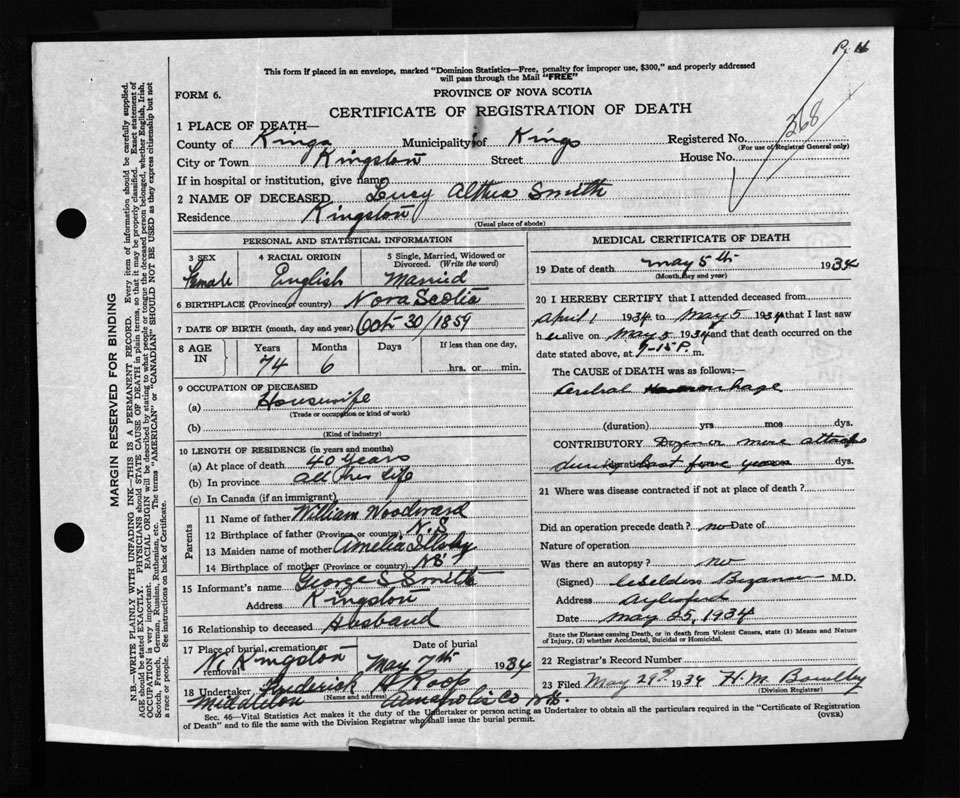 P. 16
This form if placed in an envelope, marked "Dominion Statistics—Free, penalty for improper use, $300," and properly addressed
will pass through the Mail "FREE"
FORM 6.
PROVINCE OF NOVA SCOTIA
CERTIFICATE OF REGISTRATION OF DEATH
268
1 PLACE OF DEATH—
County of Kings Municipality of Kings Registered No.
(For use of Registrar General only)
City or Town Kingston Street House No.
If in hospital or institution, give name
2 NAME OF DECEASED Lucy Althea Smith
Residence Kingston
(Usual place of abode)
PERSONAL AND STATISTICAL INFORMATION
3 SEX Female
4 RACIAL ORIGIN English
5 Single, Married, Widowed or Divorced. (Write the word) Married
6 BIRTHPLACE (Province or country) Nova Scotia
7 DATE OF BIRTH (month, day and year) Oct 30/1859
8 AGE IN Years 74 Months 6 Days If less than one day, hrs. or min.
9 OCCUPATION OF DECEASED
(a) Housewife
(Trade or occupation or kind of work)
(b)
(Kind of industry)
10 LENGTH OF RESIDENCE (in years and months)
(a) At place of death 40 years
(b) In province all her life
(c) In Canada (if an immigrant)
Parents
11 Name of father William Woodward
12 Birthplace of father (Province or country) N.S
13 Maiden name of mother Amelia
14 Birthplace of mother (Province or country) NB
15 Informant's name George S Smith
Address Kingston
16 Relationship to deceased Husband
17 Place of burial, cremation or removal N. Kingston
Date of burial May 7th 1934
18 Undertaker Frederick H Roop
(Name and address)
Middleton Annapolis Co N.S.
MEDICAL CERTIFICATE OF DEATH
19 Date of death May 5th 1934
(Month, day and year)
20 I HEREBY CERTIFY that I attended deceased from
April 1 1934 to May 5 1934 that I last saw
her alive on May 5 1934 and that death occurred on the
date stated above, at 9-15 P. m.
The CAUSE of DEATH was as follows:—
Cerebral Hemorrhage
(duration) yrs mos dys.
CONTRIBUTORY Dozen or more attacks
during last four years dys.
21 Where was disease contracted if not at place of death?
Did an operation precede death? no Date of
Nature of operation
Was there an autopsy? No
(Signed) Bezanson M.D.
Address Aylesford
Date May 25, 1934
State the Disease causing Death, or in death from Violent Causes, state (1) Means and Nature
of Injury, (2) whether Accidental, Suicidal or Homicidal.
22 Registrar's Record Number
23 Filed May 29th 1934 H. M. Bowlby
(Division Registrar)
Sec. 46—Vital Statistics Act makes it the duty of the Undertaker or person acting as Undertaker to obtain all the particulars required in the "Certificate of Registration
of Death" and to file the same with the Division Registrar who shall issue the burial permit.
(OVER)
MARGIN RESERVED FOR BINDING
N.B.—WRITE PLAINLY WITH UNFADING INK—THIS IS A PERMANENT RECORD. Every item of information should be carefully supplied.
AGE should be stated EXACTLY. PHYSICIANS should STATE CAUSE OF DEATH in plain terms, so that it may be properly classified. Exact statement of
OCCUPATION is very important. RACIAL ORIGIN will be described by stating to what people or tongue the deceased person belonged, whether English, Irish,
Scotch, French, German, Russian, Ruthenian, etc. The terms "AMERICAN" or "CANADIAN" SHOULD NOT BE USED as they express citizenship but not
a race or people. See instructions on back of Certificate.